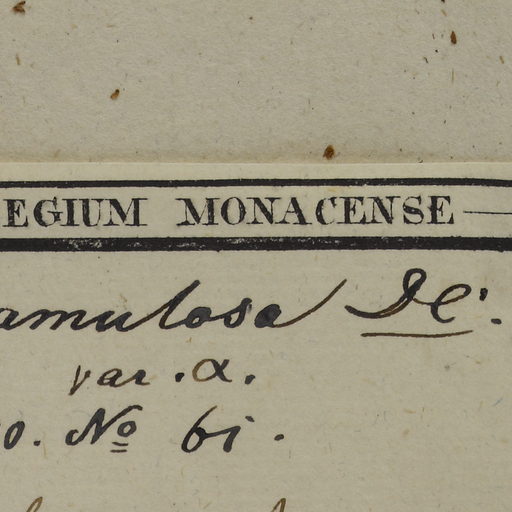 EGIUM MONACENSE
amulosa DC.
var. α.
0. No 61.